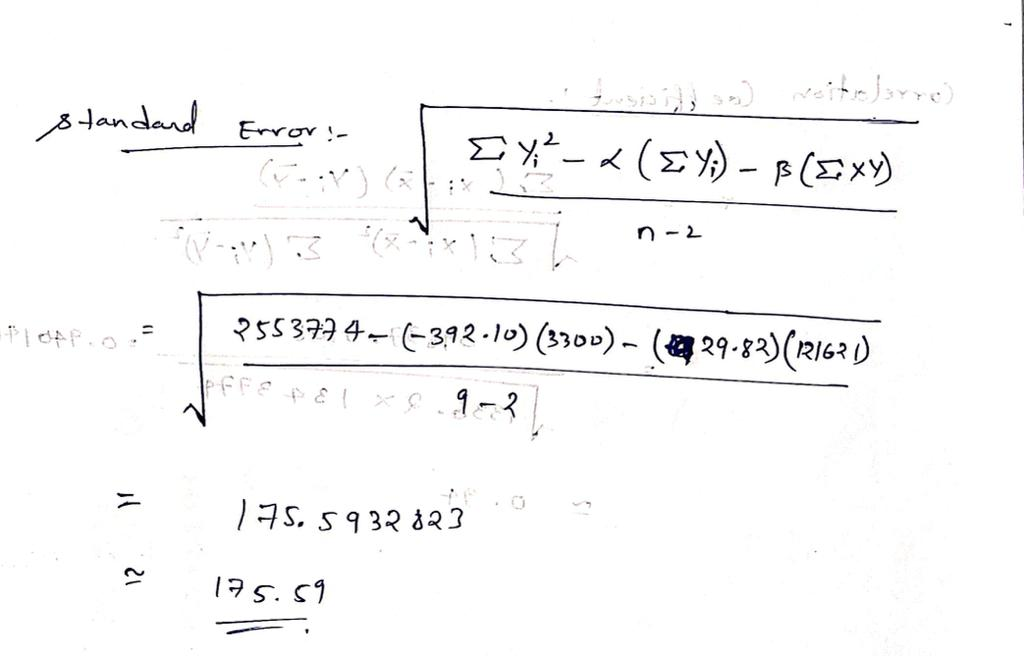 Standard Error :- √ ΣYi² - α (ΣYi) - β (ΣXY) / n - 2
= √ 2553774 - (-392.10) (3300) - (29.82) (121621) / 9 - 2
= 175.5932823
≃ 175.59